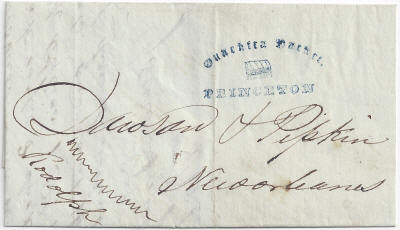 Ouachita Packet.
PRINCETON
Dawson & Pipkin
New orleans
Rodolph